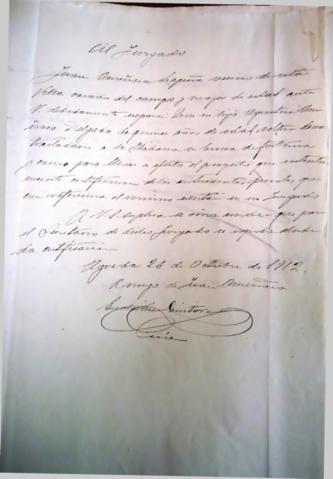 Al Juzgado
Juan Omeñaca Lapeña vecino de esta
Villa casado del campo y mayor de edad ante
V. debidamente expone: Que su hijo Agustin Ome-
ñaca Delgado de quince años de edad soltero desea
trasladarse a la Habana en busca de fortuna
y como para llevar a efecto el proyecto que
necesite certificacion de los antecedentes penales que
con referencia al mismo existan en su Juzgado
A V. Suplica se sirva ordenar que por
el Secretario de dicho Juzgado se expida
certificacion
Agreda 26 de Octubre de 1912.
A ruego de Juan Omeñaca